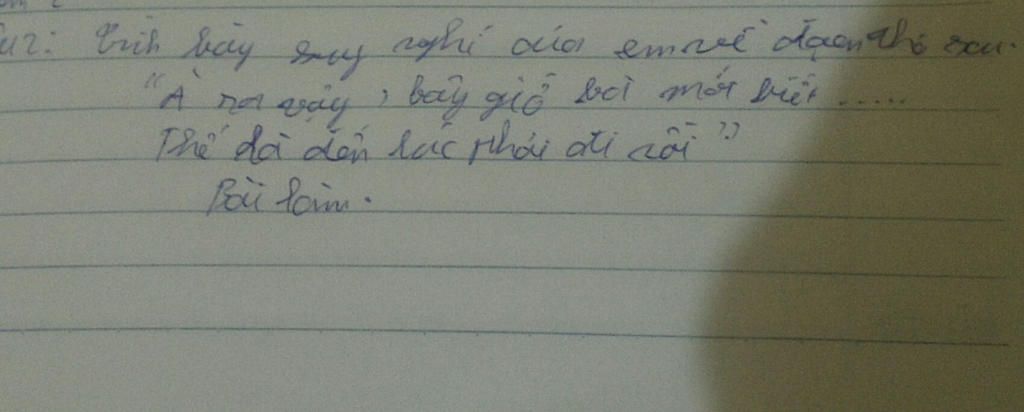 u2: Trình bày suy nghĩ của em về đoạn thơ sau.
"À ra vậy, bây giờ bà mới biết.....
Thế đã đến lúc phải đi rồi"
Bài làm.